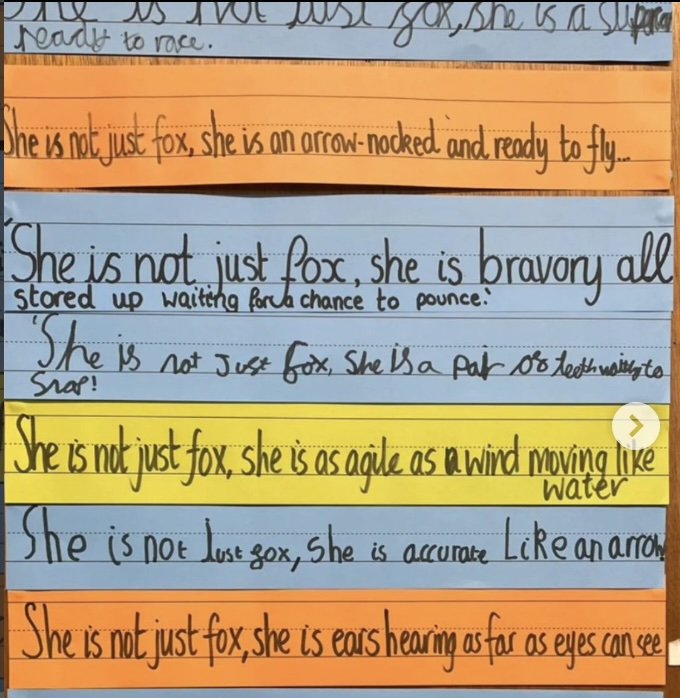 She is not just fox, she is a
ready to race.
She is not just fox, she is an arrow-nocked and ready to fly...
'She is not just fox, she is bravory all
stored up waiting for a chance to pounce.'
'She is not Just fox, She is a pair of teeth waiting to
Snap!
She is not just fox, she is as agile as a wind moving like
water
She is not Just fox, she is accurate Like an arrow
She is not just fox, she is ears hearing as far as eyes can see